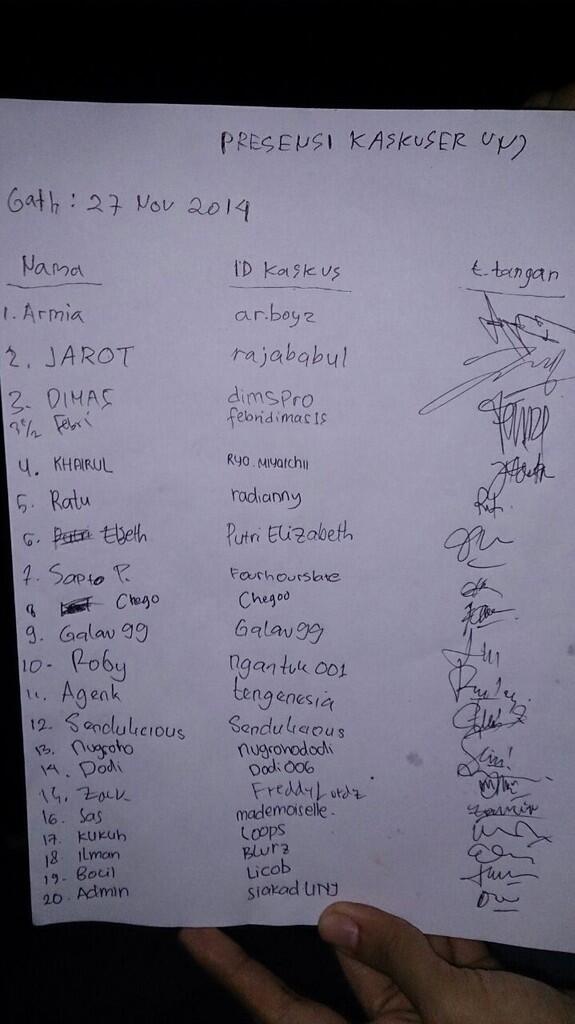 PRESENSI KASKUSER UNJ
Gath : 27 Nov 2014
Nama ID Kaskus t.tangan
1. Armia ar.boyz
2. JAROT rajababul
3. DIMAS dimsPro
3 1/2 Febri febridimas1s
4. KHAIRUL RYO.MIYAICHII
5. Ratu radianny
6. Ebeth Putri Elizabeth
7. Sapto P. Fourhourslate
8 Chego Chegoo
9. Galau gg Galau gg
10- Roby ngantuk 001
11. Agenk tengenesia
12. Sendulicious Sendulicious
13. Nugroho nugrohododi
14. Dodi Dodi006
15. Zack FreddyLordz
16. Sas mademoiselle.
17. KUKUH Loops
18 Ilman Blurz
19. Bocil Licob
20. Admin siakad UNJ